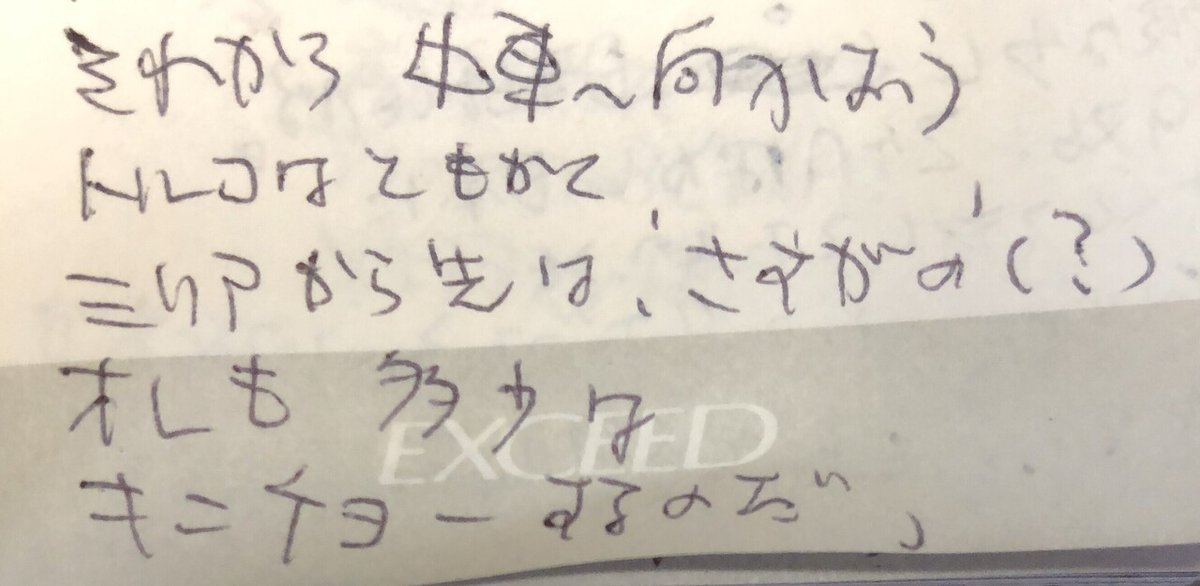 それから 中東へ向かおう
トルコはともかく
三卯から先は、'さすがの'(?)
オレも 多少は
キンチョーするのだ、
EXCEED